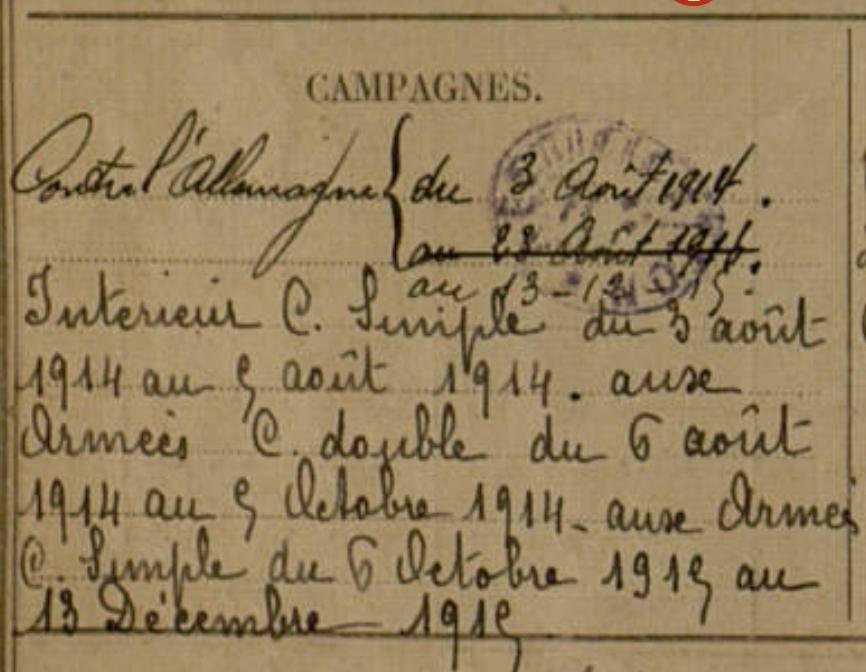 CAMPAGNES.
Contre l'Allemagne { du 3 Août 1914.
au 22 Août 1914.
au 13-12 15.
Intérieur C. Simple du 3 août
1914 au 5 août 1914. aux
Armées C. double du 6 août
1914 au 5 Octobre 1914. aux Armées
C. Simple du 6 Octobre 1915 au
13 Décembre 1915